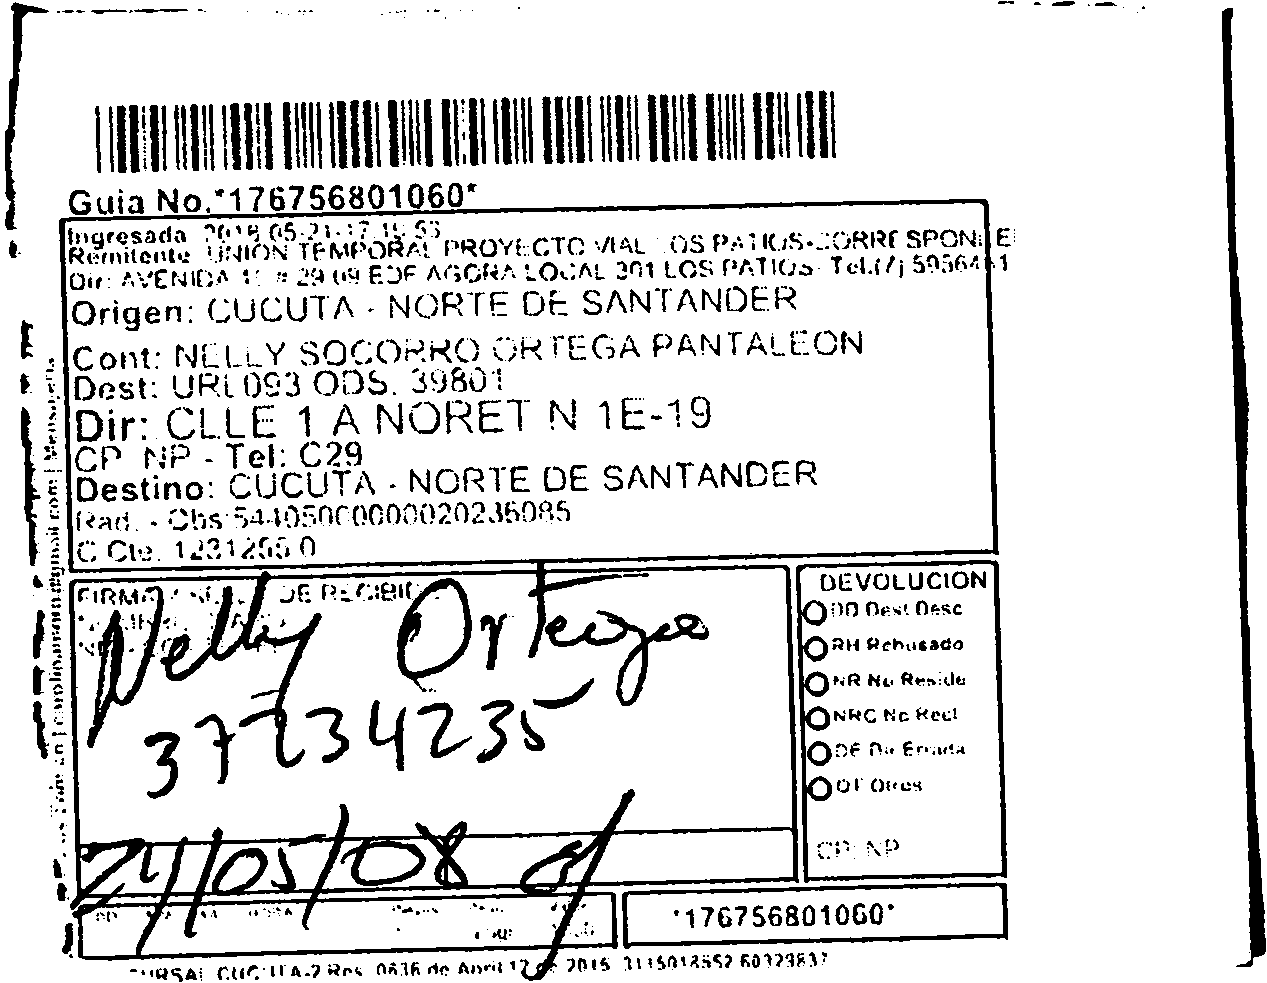 Guia No.*176756801060*
Ingresada 2018-05-21-17
Remitente UNION TEMPORAL PROYECTO VIAL LOS PATIOS-CORRESPON
Dir: AVENIDA # 29 09 EDF AGORA LOCAL 301 LOS PATIOS- Tel.(7)
Origen: CUCUTA - NORTE DE SANTANDER
Cont: NELLY SOCORRO ORTEGA PANTALEON
Dest: URL093 ODS. 39801
Dir: CLLE 1 A NORET N 1E-19
CP NP - Tel: C29
Destino: CUCUTA - NORTE DE SANTANDER
Rad. - Obs:
C Cte.
FIRMA DE RECIBIC
Nelly Ortega
37234235
24/05/08
DEVOLUCION
DD Dest Desc
RH Rehusado
NR No Reside
NRC No Recl
DE Dir Errada
OT Otros
CP: NP
*176756801060*
CUCUTA-2 Res. 0636 de Abril 17 de 2015